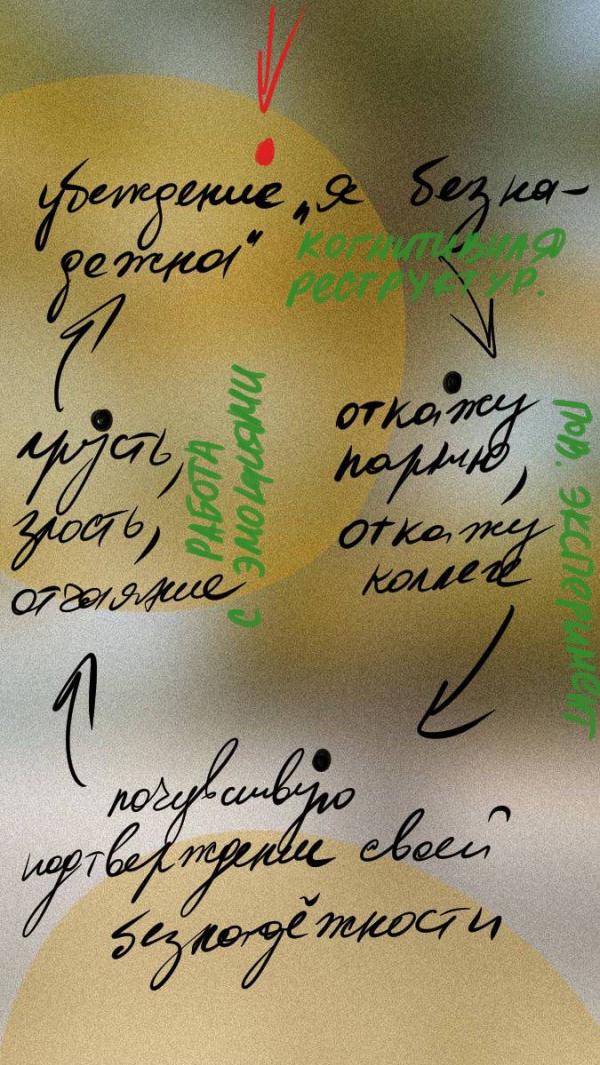 убеждение „я безна-
дежна"
КОГНИТИВНАЯ
РЕСТРУКТУР.
откажу
парню,
откажу
коллеге
ПОВ. ЭКСПЕРИМЕНТ
почувствую
подтверждение своей
безнадёжности
грусть,
злость,
отчаяние
РАБОТА
С ЭМОЦИЯМИ